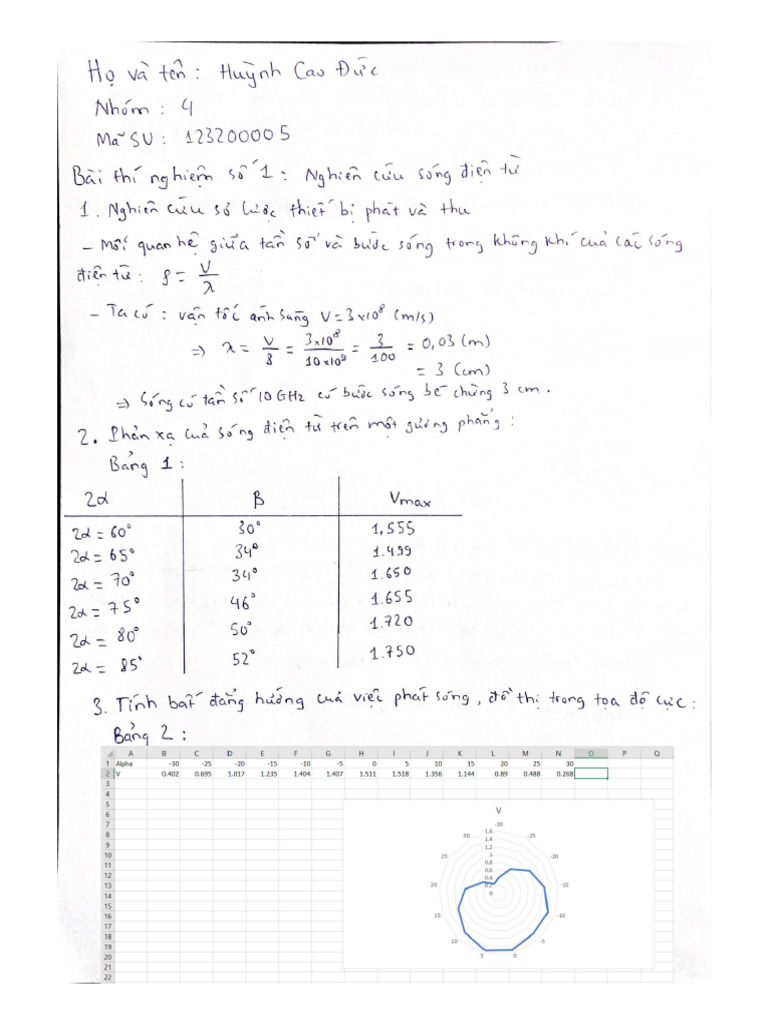 Họ và tên : Huỳnh Cao Đức
Nhóm : 4
Mã SV : 123200005
Bài thí nghiệm số 1 : Nghiên cứu sóng điện từ
1. Nghiên cứu sơ lược thiết bị phát và thu
- Mối quan hệ giữa tần số và bước sóng trong không khí của các sóng
điện từ : f = V/λ
- Ta có : vận tốc ánh sáng V = 3×10⁸ (m/s)
=> λ = V/f = 3×10⁸/10×10⁹ = 3/100 = 0,03 (m)
= 3 (cm)
=> Sóng có tần số 10 GHz có bước sóng bé chừng 3 cm.
2. Phản xạ của sóng điện từ trên một gương phẳng :
Bảng 1 :
2α β Vmax
2α = 60° 30° 1,555
2α = 65° 34° 1.499
2α = 70° 34° 1.650
2α = 75° 46° 1.655
2α = 80° 50° 1.720
2α = 85° 52° 1.750
3. Tính bất đẳng hướng của việc phát sóng, đồ thị trong tọa độ cực :
Bảng 2 :
A B C D E F G H I J K L M N O P Q
1 Alpha -30 -25 -20 -15 -10 -5 0 5 10 15 20 25 30
2 V 0.402 0.695 1.017 1.235 1.404 1.407 1.511 1.518 1.356 1.144 0.89 0.488 0.268
3
4
5
6
7
8
9
10
11
12
13
14
15
16
17
18
19
20
21
22
V
-30
30 1.6 -25
1.4
1.2
25 1 -20
0.8
0.6
0.4
20 0.2 -15
0
15 -10
10 -5
5 0